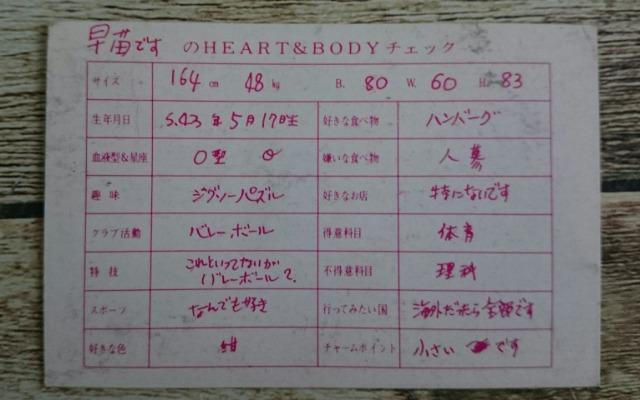 早苗です のHEART&BODYチェック
サイズ 164 cm 48 kg B. 80 W. 60 H. 83
生年月日 S.43年5月17日生 好きな食べ物 ハンバーグ
血液型&星座 O型 嫌いな食べ物 人蔘
趣味 ジグソーパズル 好きなお店 特にないです
クラブ活動 バレーボール 得意科目 体育
特技 これといってないが 不得意科目 理科
バレーボール?
スポーツ なんでも好き 行ってみたい国 海外だったら全部です
好きな色 紺 チャームポイント 小さい です